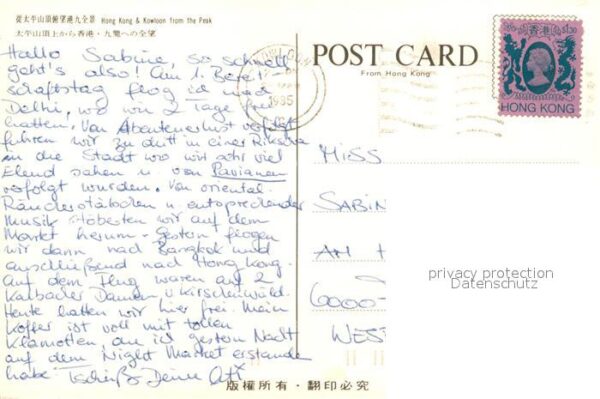 從太平山頂俯望港九全景 Hong Kong & Kowloon from the Peak
太平山頂上から香港・九龍への全望
Hallo Sabine, so schnell
geht's also! Am 1. Bereit-
schaftstag flog ich nach
Delhi, wo wir 2 Tage frei
hatten. Von Abenteuerlust verfolgt
fuhren wir zu dritt in einer Rikscha
in die Stadt wo wir sehr viel
Elend sahen u. von Pavianen
verfolgt wurden. Von oriental.
Räucherstäbchen u. entsprechender
Musik stöberten wir auf dem
Markt herum. Gestern flogen
wir dann nach Bangkok und
anschließend nach Hong Kong.
Auf dem Flug waren auf 2
Kalbacher Damen
Heute hatten wir hier frei. Mein
Koffer ist voll mit tollen
Klamotten, die ich gestern Nacht
auf dem Night Market erstanden
habe. Tschüß Deine
POST CARD
From Hong Kong
1985
香港
$1.30
HONG KONG
MISS
SABIN
AM
6000-
WEST
privacy protection
Datenschutz
版權所有・翻印必究